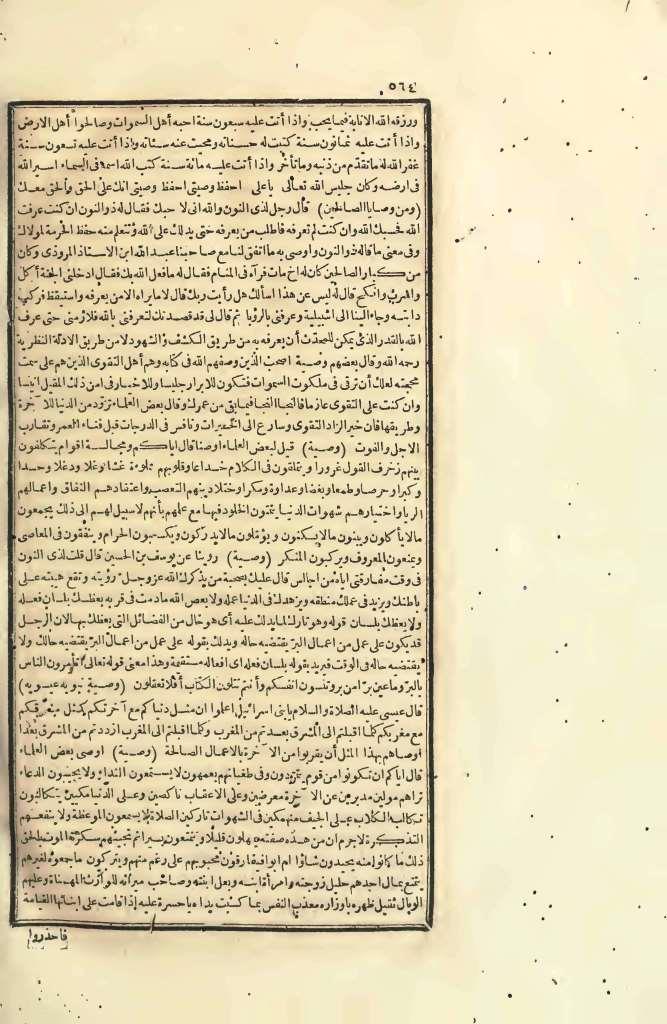 ٥٦٤
ورزقه الله الانابة فيما يحب واذا أتت عليه سبعون سنة احبه أهل السموات وصالحوا أهل الارض
واذا أتت عليه ثمانون سنة كتبت له حسناته ومحيت عنه سيئاته واذا أتت عليه تسعون سنة
غفر الله له ما تقدم من ذنبه وما تأخر واذا أتت عليه مائة سنة كتب الله اسمه فى السماء اسير الله
فى ارضه وكان جليس الله تعالى ياعلى احفظ وصيتى احفظ وصيتى انك على الحق والحق معك
(ومن وصايا الصالحين) قال رجل لذى النون والله انى لا حبك فقال له ذو النون ان كنت عرفت
الله فحسبك الله وان كنت لم تعرفه فاطلب من يعرفه حتى يدلك على الله وتتعلم منه حفظ الحرمة لمولاك
وفى معنى ما قاله ذو النون واوصى به ما اتفق لنا مع صاحبنا عبد الله ابن الاستاذ المروذى وكان
من كبار الصالحين كان له اخ مات فرآه فى المنام فقال له ما فعل الله بك فقال ادخلنى الجنة آكل
واشرب وانكح قال له ليس عن هذا اسألك هل رأيت ربك قال لا ما يراه الا من يعرفه واستيقظ فركب
دابته وجاء الينا الى اشبيلية وعرفنى بالرؤيا ثم قال لى قد قصدتك لتعرفنى بالله فلازمنى حتى عرف
الله بالقدر الذى يمكن للمحدث أن يعرفه به من طريق الكشف والشهود لا من طريق الادلة النظرية
رحمه الله وقال بعضهم وصية اصحب الذين وصفهم الله فى كتابه وهم أهل التقوى الذين هم على سمت
محجته لعلك أن ترقى فى ملكوت السموات فتكون للابرار جليسا وللاخيار فى امن ذلك المقيل انيسا
وان كنت على التقوى عازما فالنجا النجا فيما بقى من عمرك وقال بعض العلماء تزود من الدنيا للآخرة
وطريقها فان خير الزاد التقوى وسارع الى الخيرات ونافس فى الدرجات قبل فناء العمر وتقارب
الاجل والفوت (وصية) قيل لبعض العلماء اوصنا قال اياكم ومجالسة اقوام يتكلفون
بينهم زخرف القول غرورا ويتملقون فى الكلام خداعا وقلوبهم مملوءة غشا وغلا ودغلا وحسدا
وكبرا وحرصا وطمعا وبغضا وعداوة ومكرا وختلا دينهم التعصب واعتقادهم النفاق واعمالهم
الريا واختيارهم شهوات الدنيا يتمنون الخلود فيها مع علمهم بأنهم لا سبيل لهم الى ذلك يجمعون
مالا يأكلون ويبنون مالا يسكنون ويؤملون مالا يدركون ويكسبون الحرام وينفقون فى المعاصى
ويمنعون المعروف ويركبون المنكر (وصية) روينا عن يوسف بن الحسين قال قلت لذى النون
فى وقت مفارقتى اياه من اجالس قال عليك بصحبة من يذكرك الله عز وجل رؤيته وتقع هيبته على
باطنك ويزيد فى عملك منطقه ويزهدك فى الدنيا عمله ولا يعص الله مادمت فى قربه يعظك بلسان فعله
ولا يعظك بلسان قوله وهو تارك لما يدلك عليه أى هو خال من الفضائل التى يعظك بها لان الرجل
قد يكون على عمل من اعمال البر يقتضيه حاله ويدلك بقوله على عمل من اعمال البر يقتضيه حالك ولا
يقتضيه حاله فى الوقت فيريد بقوله بلسان فعله اى افعاله مستقيمة وهذا معنى قوله تعالى أتأمرون الناس
بالبر وما عين برا من بر وتنسون انفسكم وأنتم تتلون الكتاب أفلا تعقلون (وصية نبويه عيسويه)
قال عيسى عليه الصلاة والسلام يا بنى اسرائيل اعلموا ان مثل دنياكم مع آخرتكم كمثل مشرقكم
مع مغربكم كلما اقبلتم الى المشرق بعدتم من المغرب وكلما اقبلتم الى المغرب ازددتم من المشرق بعدا
اوصاهم بهذا المثل أن يقربوا من الآخرة بالاعمال الصالحة (وصية) اوصى بعض العلماء
قال اياكم ان تكونوا من قوم يتمردون وفى طغيانهم يعمهون لا يستمعون النداء ولا يجيبون الدعاء
تراهم مولين مدبرين عن الآخرة معرضين وعلى الاعقاب ناكصين وعلى الدنيا مكبين يتكالبون
تكالب الكلاب على الجيف منهمكين فى الشهوات تاركين الصلاة لا يسمعون الموعظة ولا ينفعهم
التذكرة لا جرم ان من هذه صفته يمهلون قليلا ويتمتعون يسيرا ثم تجيئهم سكرة الموت بالحق
ذلك ما كانوا منه يحيدون شاؤا ام ابوا فيفارقون محبوبهم على رغم منهم ويتركون ما جمعوه لغيرهم
يتمتع بمال احدهم حليل زوجته وامرأة ابنه وبعل ابنته وصاحب ميراثه للوارث المهناة وعليهم
الوبال ثقيل ظهره باوزاره معذب النفس بما كسبت يداه يا حسرة عليه إذا قامت على ابنائها القيامة
فاحذروا